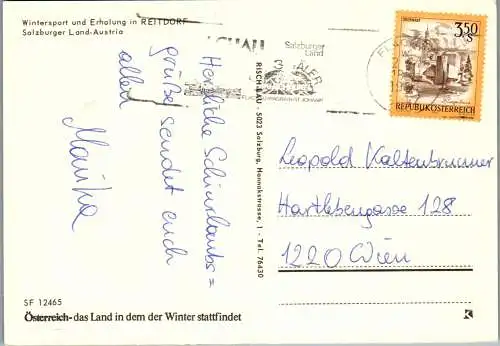 Wintersport und Erholung in REITDORF
Salzburger Land-Austria
Herzliche Schiurlaubs=
grüße sendet euch
allen
Marika
Salzburger
Land
3
TÄLER
RISCH-LAU - 5023 Salzburg, Hannakstrasse, 1 - Tel. 76430
3.50
S
REPUBLIK ÖSTERREICH
Leopold Kaltenbrunner
Hartlebengasse 128
1220 Wien
SF 12465
Österreich-das Land in dem der Winter stattfindet